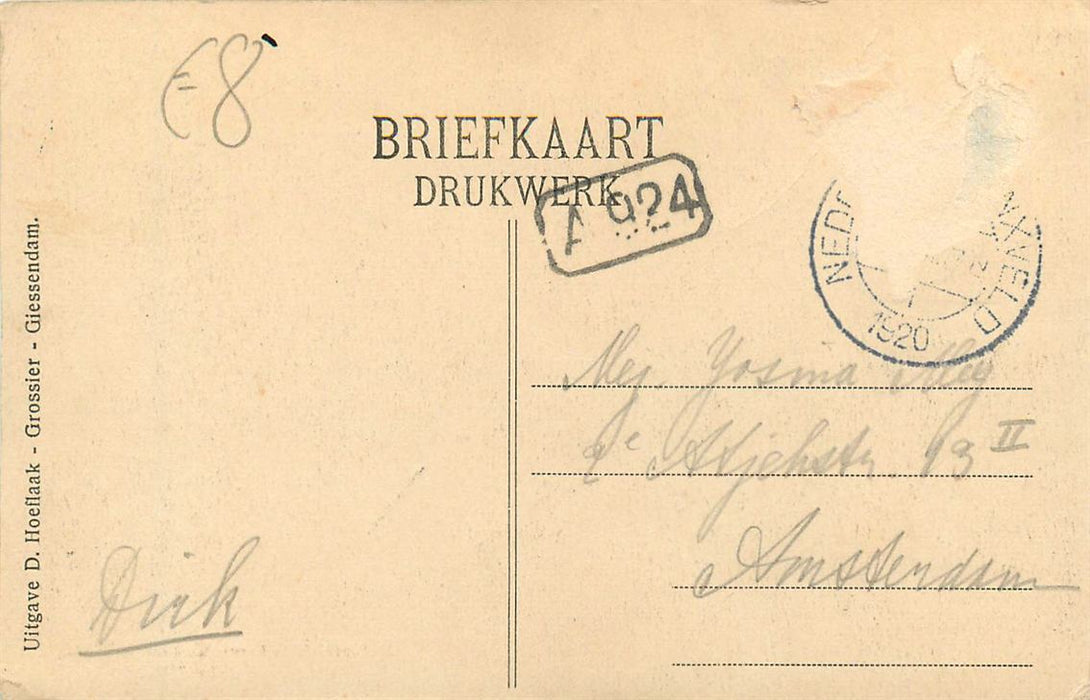 E8
BRIEFKAART
DRUKWERK
A 924
NED XVELD
1920
Uitgave D. Hoeflaak - Grossier - Giessendam.
Mej. Josina
Atjehstr. 13 II
Amsterdam
Dirk